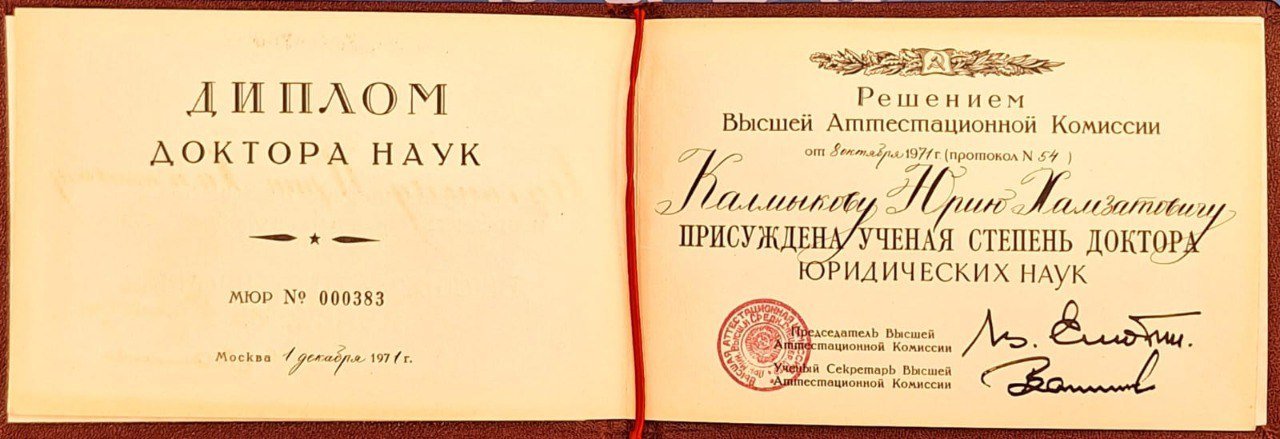 ДИПЛОМ
ДОКТОРА НАУК
МЮР № 000383
Москва 1 декабря 1971 г.
Решением
Высшей Аттестационной Комиссии
от 8 октября 1971 г. (протокол N 54 )
Калмыкову Юрию Хамзатовичу
ПРИСУЖДЕНА УЧЕНАЯ СТЕПЕНЬ ДОКТОРА
ЮРИДИЧЕСКИХ НАУК
Председатель Высшей
Аттестационной Комиссии
Ученый Секретарь Высшей
Аттестационной Комиссии
ВЫСШАЯ АТТЕСТАЦИОННАЯ